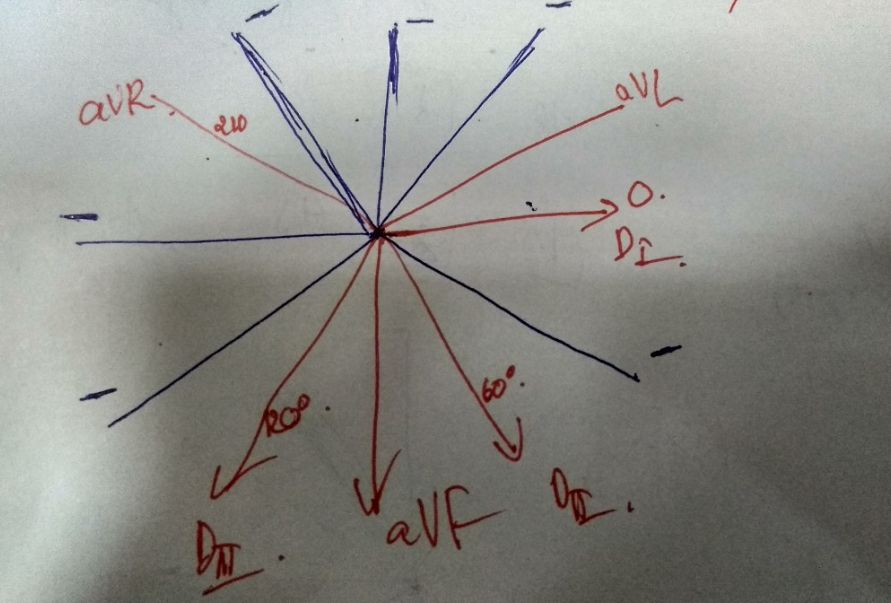 aVR
210
aVL
0.
DI.
60°.
120°.
DIII.
aVF
DII.